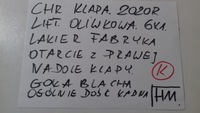 CHR KLAPA. 2020R
LIFT. OLIWKOWA. 6X1.
LAKIER FABRYKA
OTARCIE Z PRAWEJ
NA DOLE KLAPY.
GOŁA BLACHA
OGÓLNIE DOŚĆ ŁADNA
K
HM